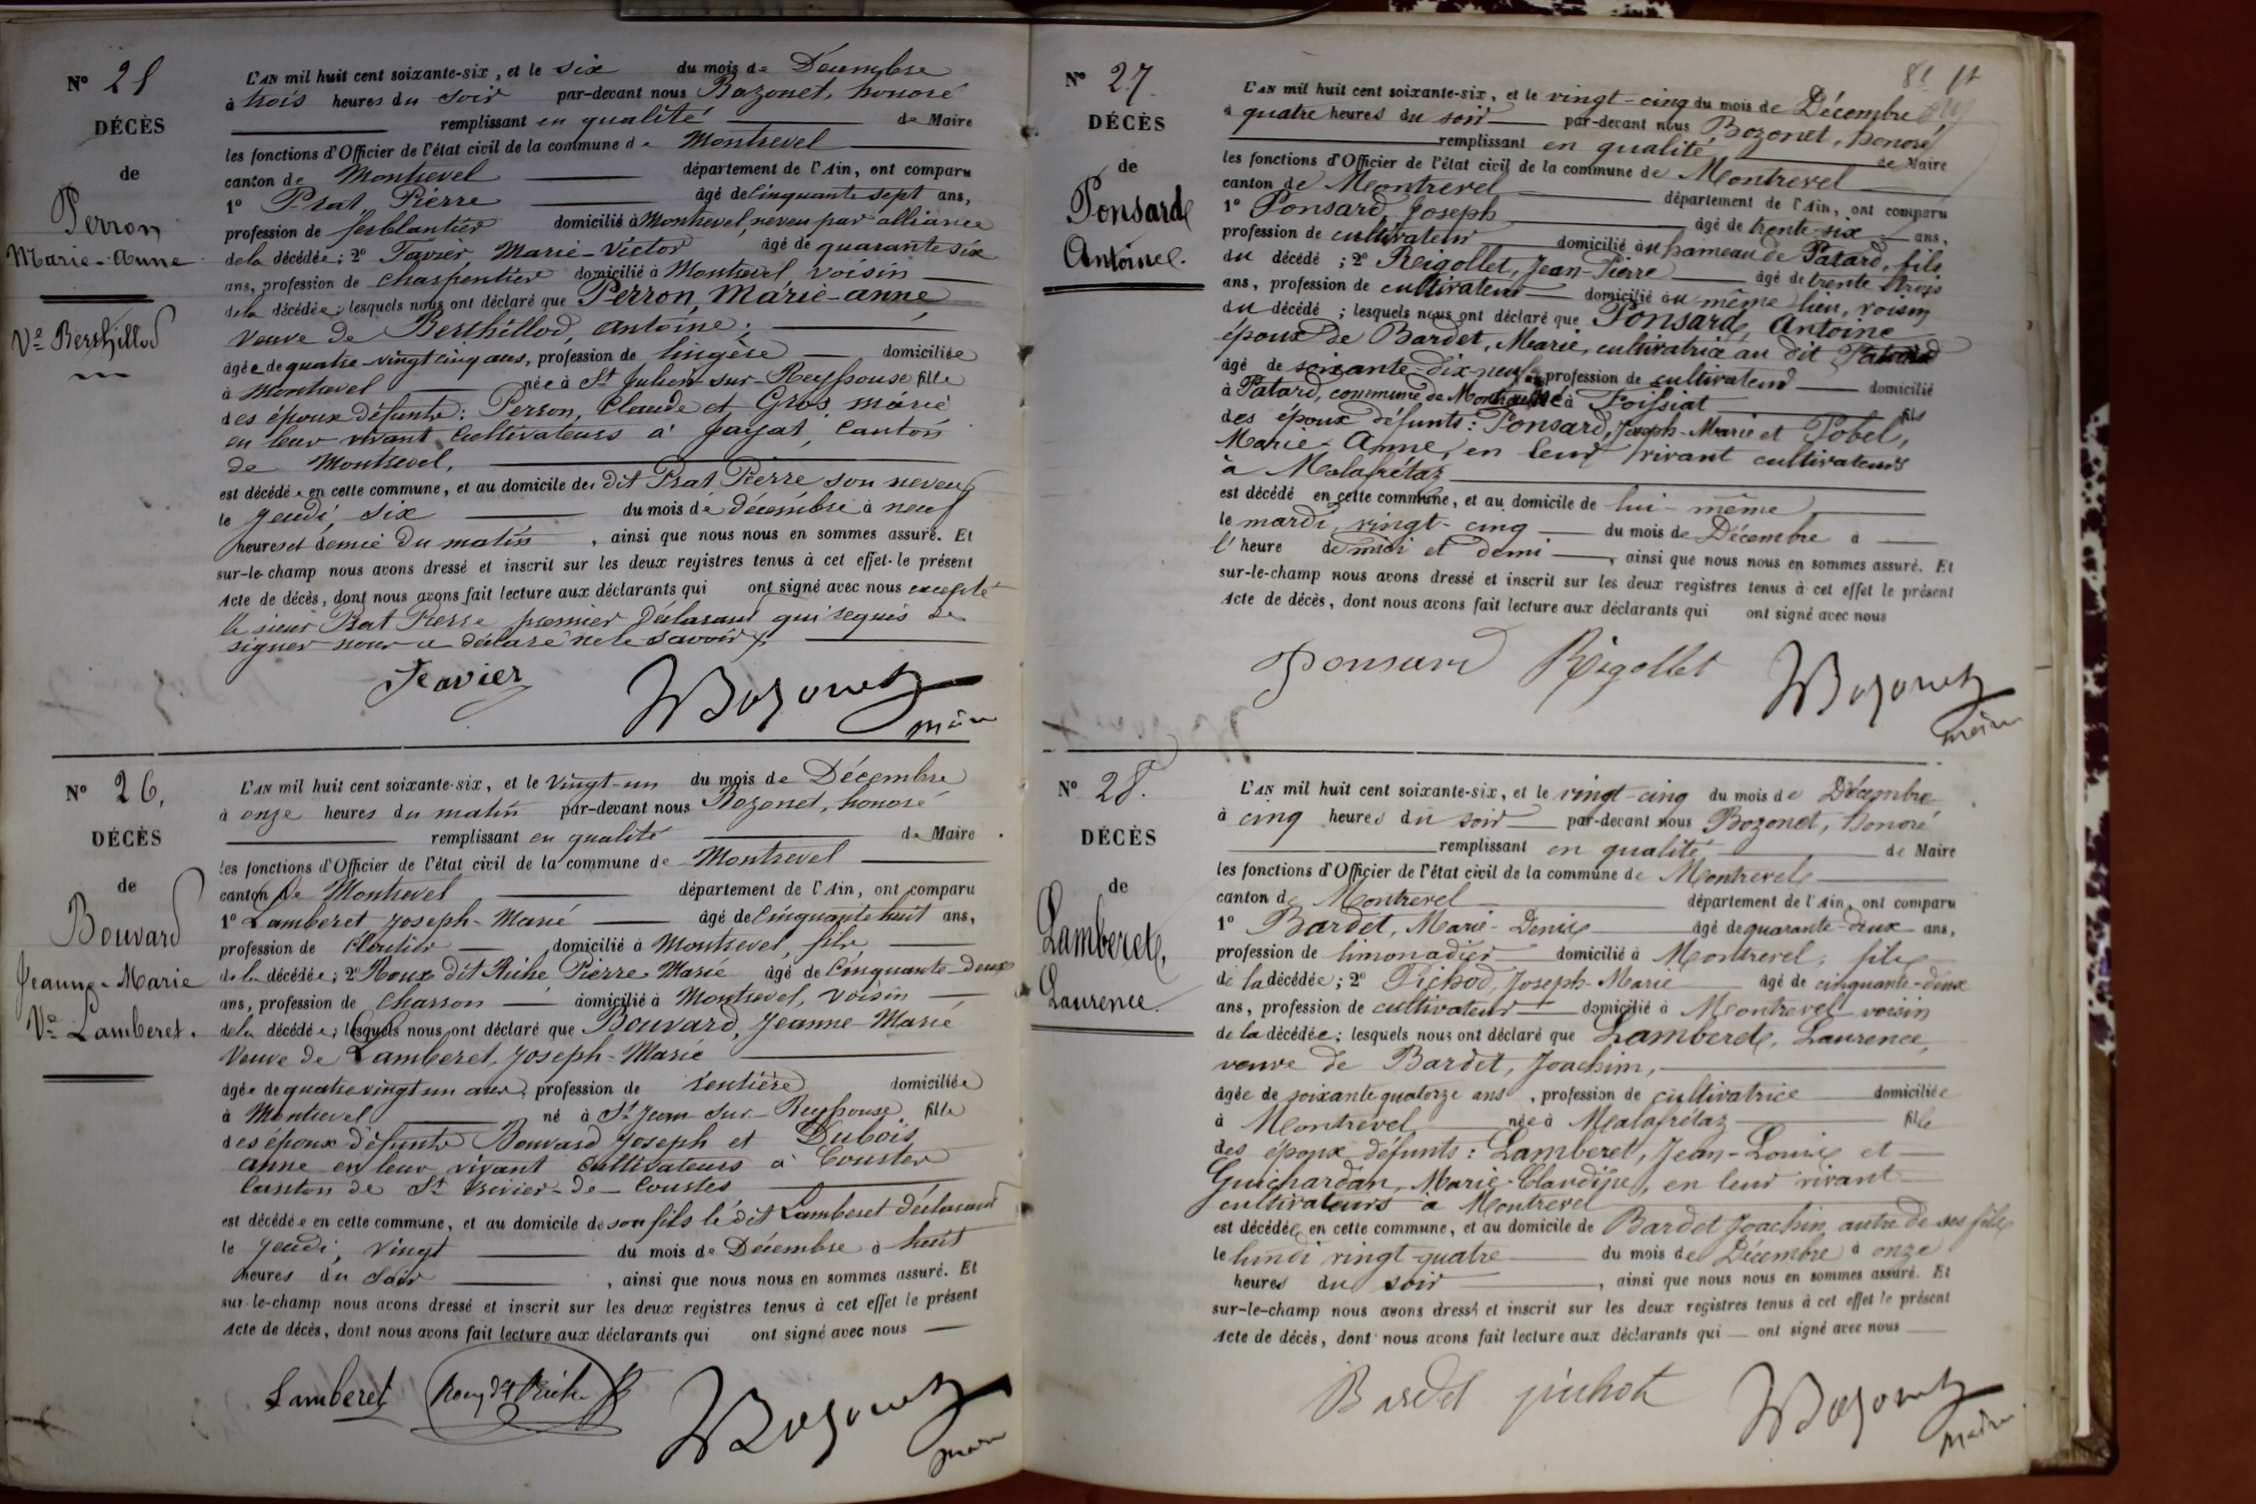 N° 25
DÉCÈS
de
Perron
Marie-Anne
Ve Berthillod
L'AN mil huit cent soixante-six, et le six du mois de Décembre
à trois heures du soir par-devant nous Bozonet, honoré
remplissant en qualité de Maire
les fonctions d'Officier de l'état civil de la commune de Montrevel
canton de Montrevel département de l'Ain, ont comparu
1° Prat, Pierre âgé de cinquante sept ans,
profession de ferblantier domicilié à Montrevel, neveu par alliance
de la décédée; 2° Favier, Marie-Victor âgé de quarante six
ans, profession de charpentier domicilié à Montrevel, voisin
de la décédée; lesquels nous ont déclaré que Perron, Marie-anne
veuve de Berthillod, antoine;
âgée de quatre-vingt cinq ans, profession de lingère domiciliée
à Montrevel née à St Julien-sur-Reyssouse fille
des époux défunts: Perron, Claude et Gros, marie
en leur vivant cultivateurs à Jayat, canton
de Montrevel,
est décédée en cette commune, et au domicile de dit Prat Pierre son neveu
le jeudi, six du mois de décembre à neuf
heures et demie du matin, ainsi que nous nous en sommes assuré. Et
sur-le-champ nous avons dressé et inscrit sur les deux registres tenus à cet effet le présent
Acte de décès, dont nous avons fait lecture aux déclarants qui ont signé avec nous excepté
le sieur Prat Pierre premier déclarant qui requis de
signer nous a déclaré ne le savoir
Favier Bozonet
maire
N° 26.
DÉCÈS
de
Bouvard
Jeanne-Marie
Ve Lamberet.
L'AN mil huit cent soixante-six, et le vingt-un du mois de Décembre
à onze heures du matin par-devant nous Bozonet, honoré
remplissant en qualité de Maire
les fonctions d'Officier de l'état civil de la commune de Montrevel
canton de Montrevel département de l'Ain, ont comparu
1° Lamberet Joseph-Marie âgé de cinquante huit ans,
profession de cloutier domicilié à Montrevel, fils
de la décédée; 2° Roux dit Riche Pierre-Marie âgé de cinquante-deux
ans, profession de charron domicilié à Montrevel, voisin
de la décédée; lesquels nous ont déclaré que Bouvard, Jeanne-Marie
veuve de Lamberet, Joseph-Marie
âgée de quatre vingt un ans, profession de rentière domiciliée
à Montrevel né à St Jean-sur-Reyssouse, fille
des époux défunts Bouvard Joseph et Dubois
anne en leur vivant cultivateurs à Courtes
canton de St Trivier-de-Courtes
est décédée en cette commune, et au domicile de son fils le dit Lamberet déclarant
le jeudi, vingt du mois de Décembre à huit
heures du soir, ainsi que nous nous en sommes assuré. Et
sur-le-champ nous avons dressé et inscrit sur les deux registres tenus à cet effet le présent
Acte de décès, dont nous avons fait lecture aux déclarants qui ont signé avec nous
Lamberet Roux dit Riche Bozonet
maire
N° 27.
DÉCÈS
de
Ponsard
Antoine.
L'AN mil huit cent soixante-six, et le vingt-cinq du mois de Décembre
à quatre heures du soir par-devant nous Bozonet, honoré
remplissant en qualité de Maire
les fonctions d'Officier de l'état civil de la commune de Montrevel
canton de Montrevel département de l'Ain, ont comparu
1° Ponsard, Joseph âgé de trente-six ans,
profession de cultivateur domicilié au hameau de Patard, fils
du décédé; 2° Reigollet, Jean-Pierre âgé de trente trois
ans, profession de cultivateur domicilié au même lieu, voisin
du décédé; lesquels nous ont déclaré que Ponsard, Antoine
époux de Bardet, Marie, cultivatrice au dit Patard
âgé de soixante-dix-neuf ans profession de cultivateur domicilié
à Patard, commune de Montrevel né à Foissiat fils
des époux défunts: Ponsard, Joseph-Marie et Pobel,
Marie-Anne, en leur vivant cultivateurs
à Malafrétaz
est décédé en cette commune, et au domicile de lui-même,
le mardi, vingt-cinq du mois de Décembre à
l'heure de midi et demi, ainsi que nous nous en sommes assuré. Et
sur-le-champ nous avons dressé et inscrit sur les deux registres tenus à cet effet le présent
Acte de décès, dont nous avons fait lecture aux déclarants qui ont signé avec nous
Ponsard Rigollet Bozonet
maire
N° 28.
DÉCÈS
de
Lamberet,
Laurence.
L'AN mil huit cent soixante-six, et le vingt-cinq du mois de Décembre
à cinq heures du soir par-devant nous Bozonet, honoré
remplissant en qualité de Maire
les fonctions d'Officier de l'état civil de la commune de Montrevel
canton de Montrevel département de l'Ain, ont comparu
1° Bardet, Marie-Denis âgé de quarante-deux ans,
profession de limonadier domicilié à Montrevel, fils
de la décédée; 2° Pichod, Joseph-Marie âgé de cinquante-deux
ans, profession de cultivateur domicilié à Montrevel voisin
de la décédée; lesquels nous ont déclaré que Lamberet, Laurence,
veuve de Bardet, Joachim,
âgée de soixante quatorze ans, profession de cultivatrice domiciliée
à Montrevel née à Malafrétaz fille
des époux défunts: Lamberet, Jean-Louis et
Guichardan, Marie-Claudine, en leur vivant
cultivateurs à Montrevel
est décédée en cette commune, et au domicile de Bardet Joachim, autre de ses fils
le lundi vingt-quatre du mois de Décembre à onze
heures du soir, ainsi que nous nous en sommes assuré. Et
sur-le-champ nous avons dressé et inscrit sur les deux registres tenus à cet effet le présent
Acte de décès, dont nous avons fait lecture aux déclarants qui ont signé avec nous
Bardet pichot Bozonet
maire